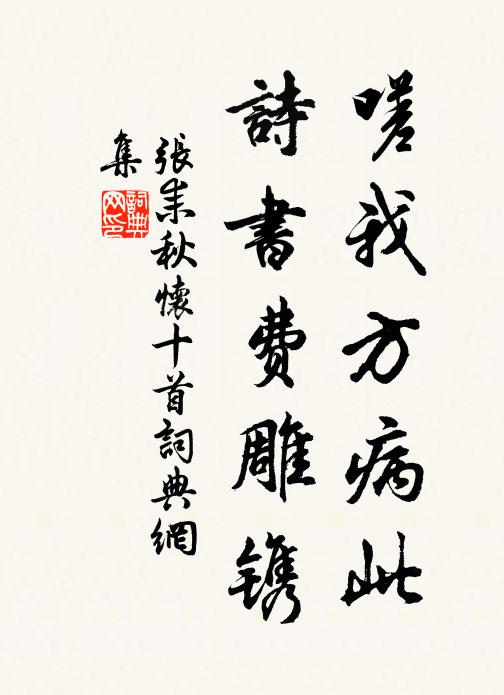 嗟我方病此
詩書費雕镌
張耒秋懷十首詞典網
集
詞典
网印